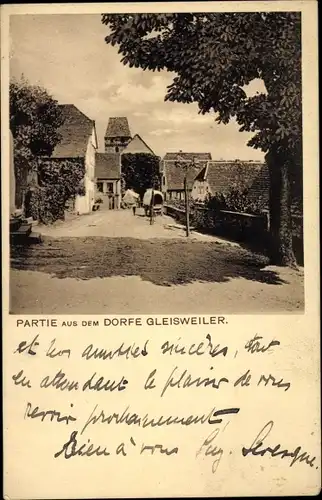 PARTIE AUS DEM DORFE GLEISWEILER.
et nos amitiés sincères, tout
en attendant le plaisir de vous
revoir prochainement
Bien à vous